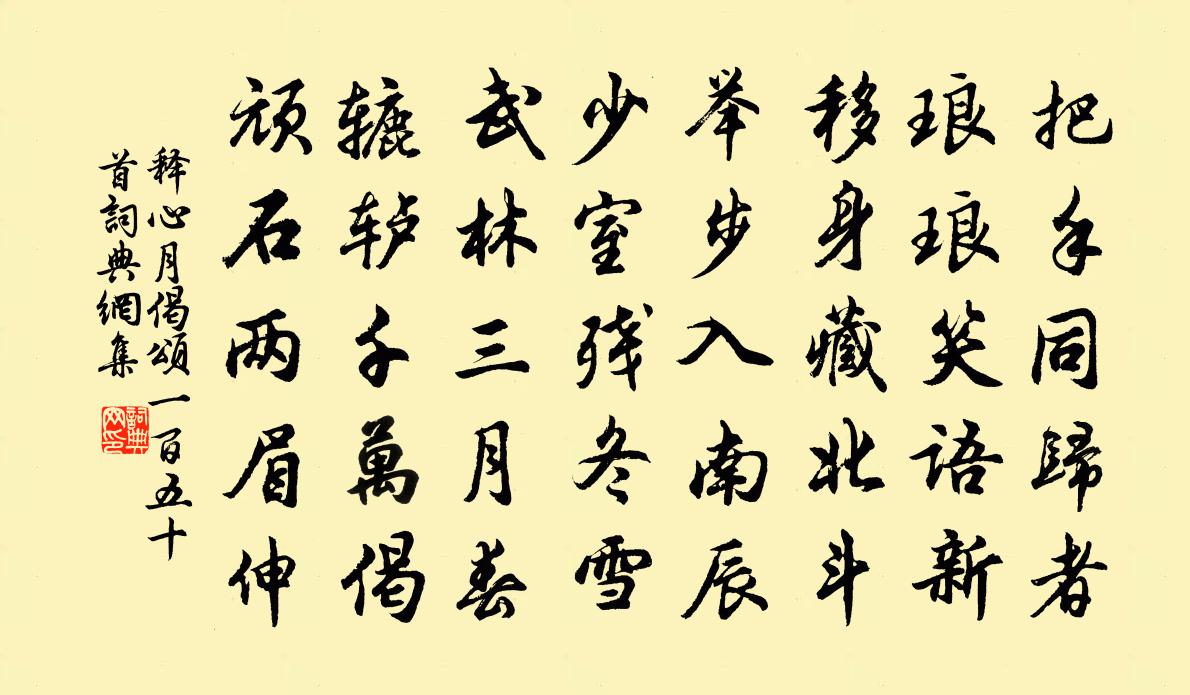 把手同歸者
琅琅笑语新
移身藏北斗
举步入南辰
少室残冬雪
武林三月春
辘轳千萬偈
顽石两眉伸
释心月偈頌一百五十
首詞典網集
詞典
网印